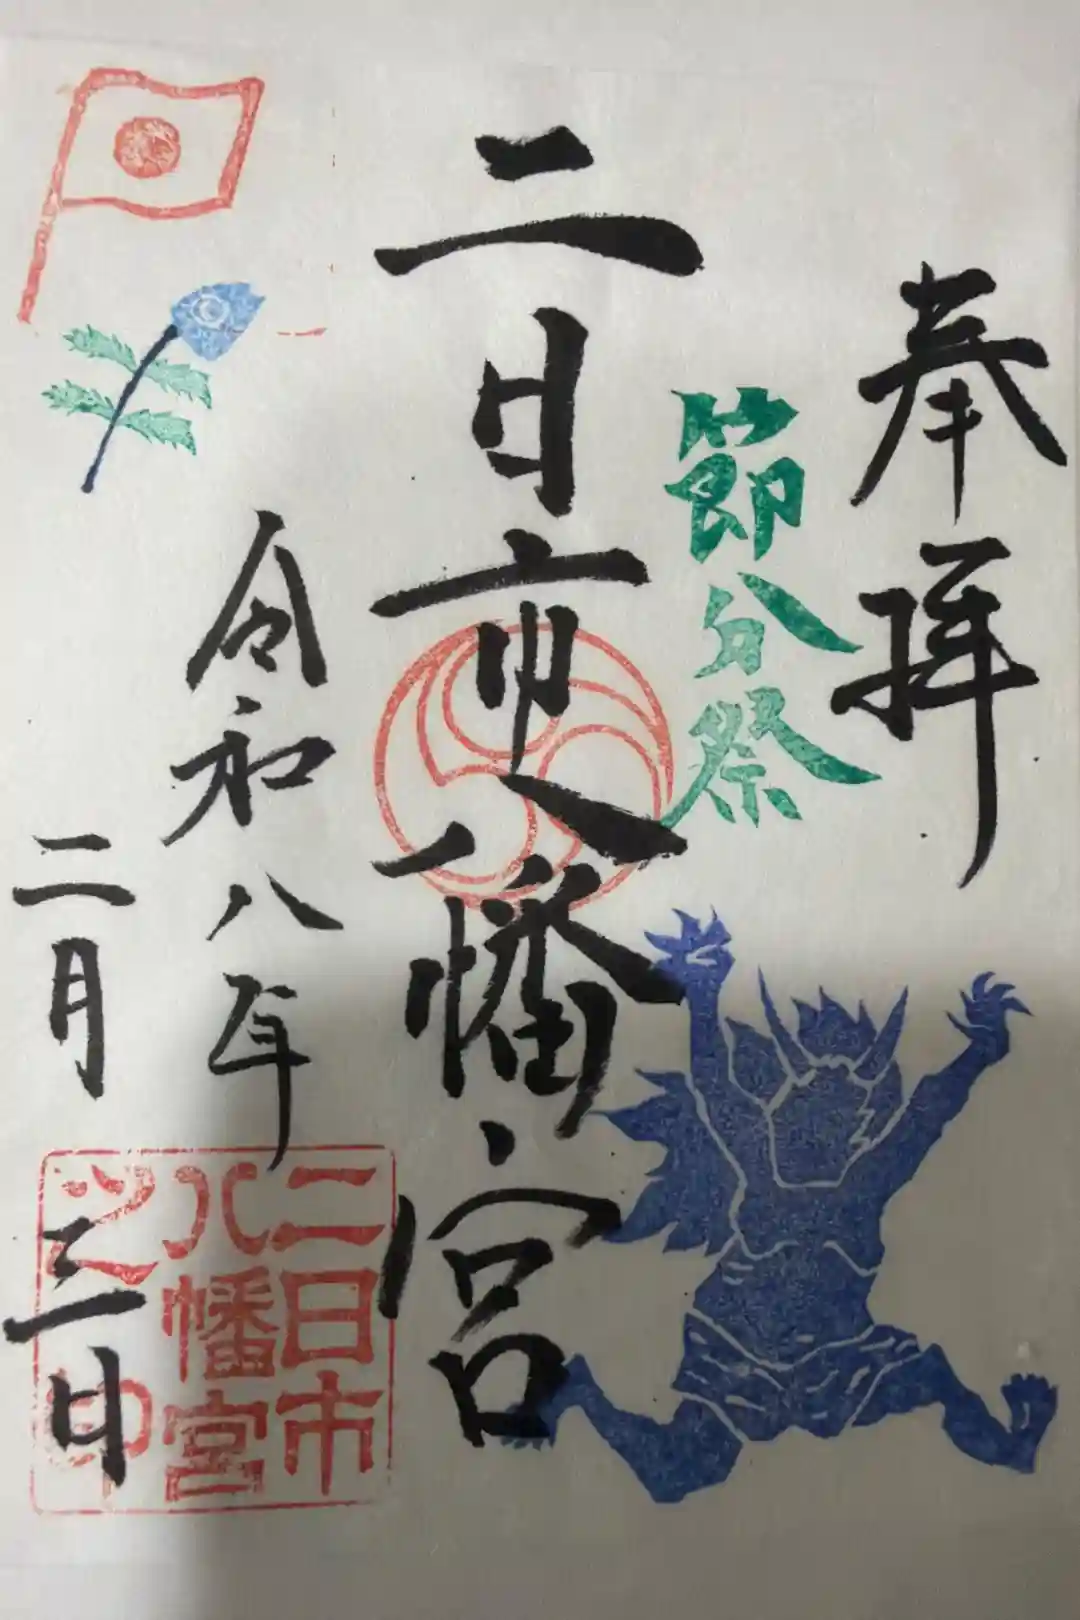 奉拝
節分祭
二日市八幡宮
令和八年
二月
三日
二日市
八幡宮
之印